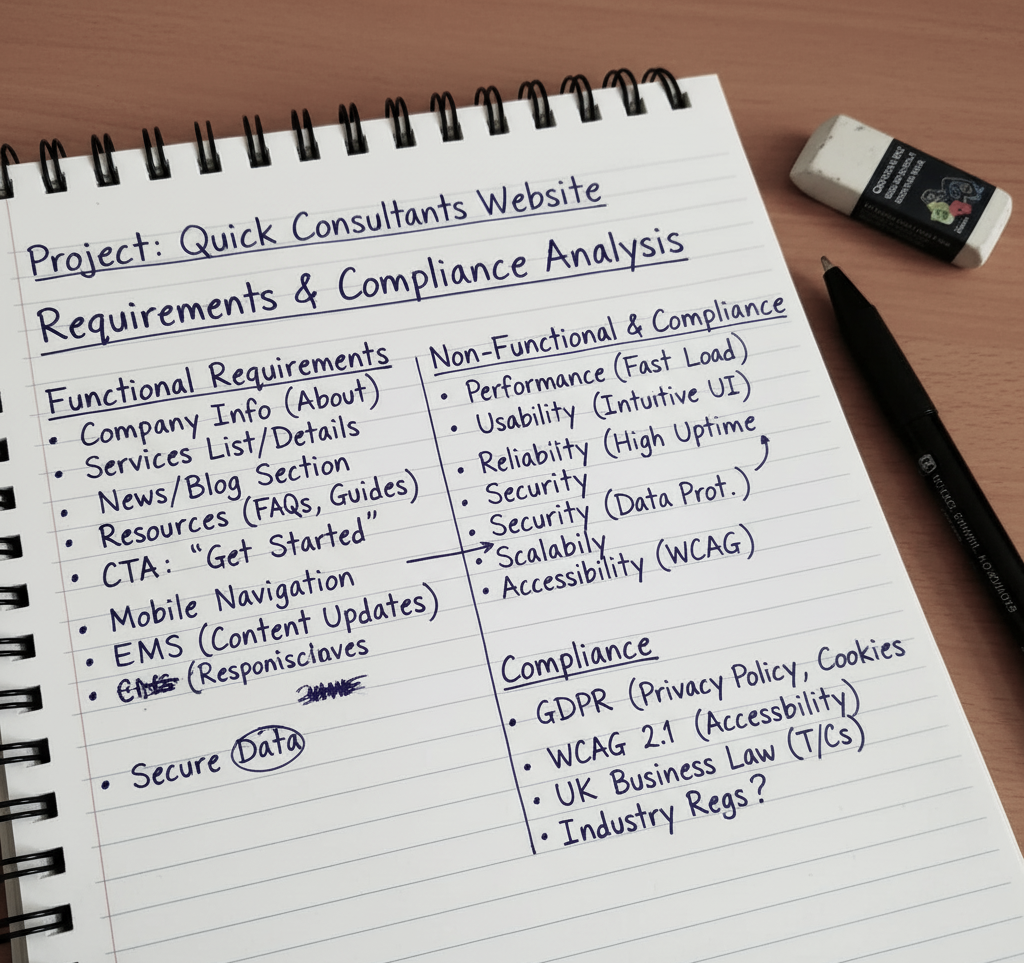 Project: Quick Consultants Website
Requirements & Compliance Analysis
Functional Requirements
• Company Info (About)
• Services List/Details
• News/Blog Section
• Resources (FAQs, Guides)
• CTA: “Get Started”
• Mobile Navigation
• EMS (Content Updates)
• (Responisclaves
• Secure Data
Non-Functional & Compliance
• Performance (Fast Load)
• Usability (Intuitive UI)
• Reliabiity (High Uptime
• Security
• Security (Data Prot.)
• Scalabily
• Accessibility (WCAG)
Compliance
• GDPR (Privacy Policy, Cookies
• WCAG 2.1 (Accessbility)
• UK Business Law (T/Cs)
• Industry Regs?